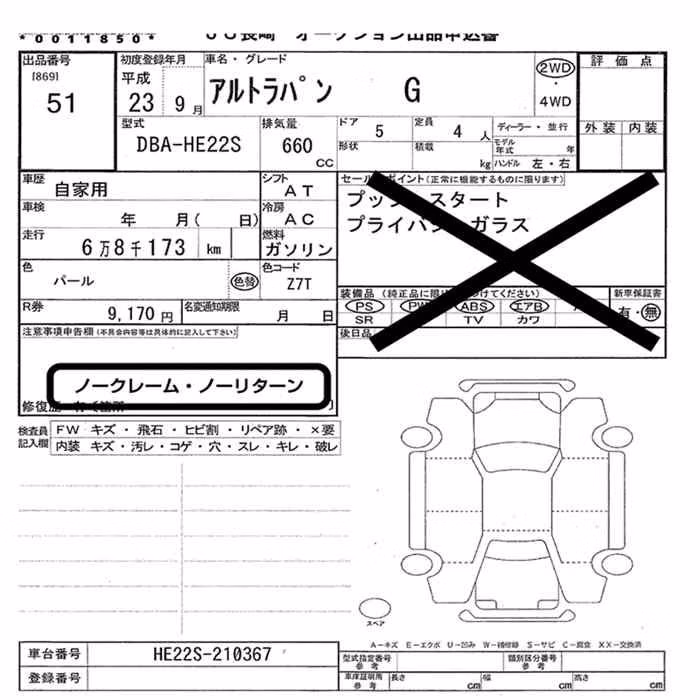 *0011850* JU長崎 オークション出品申込書
出品番号
[869]
51
初度登録年月
平成
23 9月
車名・グレード
アルトラパン G
2WD
・
4WD
評価点
外装 内装
型式
DBA-HE22S
排気量
660
CC
ドア
5
定員
4 人
ディーラー・並行
形状
積載
kg
モデル年式 年
ハンドル 左・右
車歴
自家用
シフト
AT
車検
年 月( 日)
冷房
AC
走行
6万8千173 km
燃料
ガソリン
色
パール
色替
色コード
Z7T
R券
9,170円
名変通知期限
月 日
セールスポイント(正常に機能するものに限ります)
プッシュスタート
プライバシーガラス
装備品(純正品に限り けてください)
新車保証書
PS PW ABS エアB
有・無
SR TV カワ
後日品
注意事項申告欄(不具合内容等は具体的に記入して下さい)
ノークレーム・ノーリターン
修復歴
検査員記入欄
FW キズ・飛石・ヒビ割・リペア跡・×要
内装 キズ・汚レ・コゲ・穴・スレ・キレ・破レ
スペア
A-キズ E-エクボ U-凹み W-補修跡 S-サビ C-腐食 XX-交換済
車台番号
HE22S-210367
登録番号
型式指定番号
参考
類別区分番号
参考
車庫証明用
参考
長さ cm 幅 cm 高さ cm